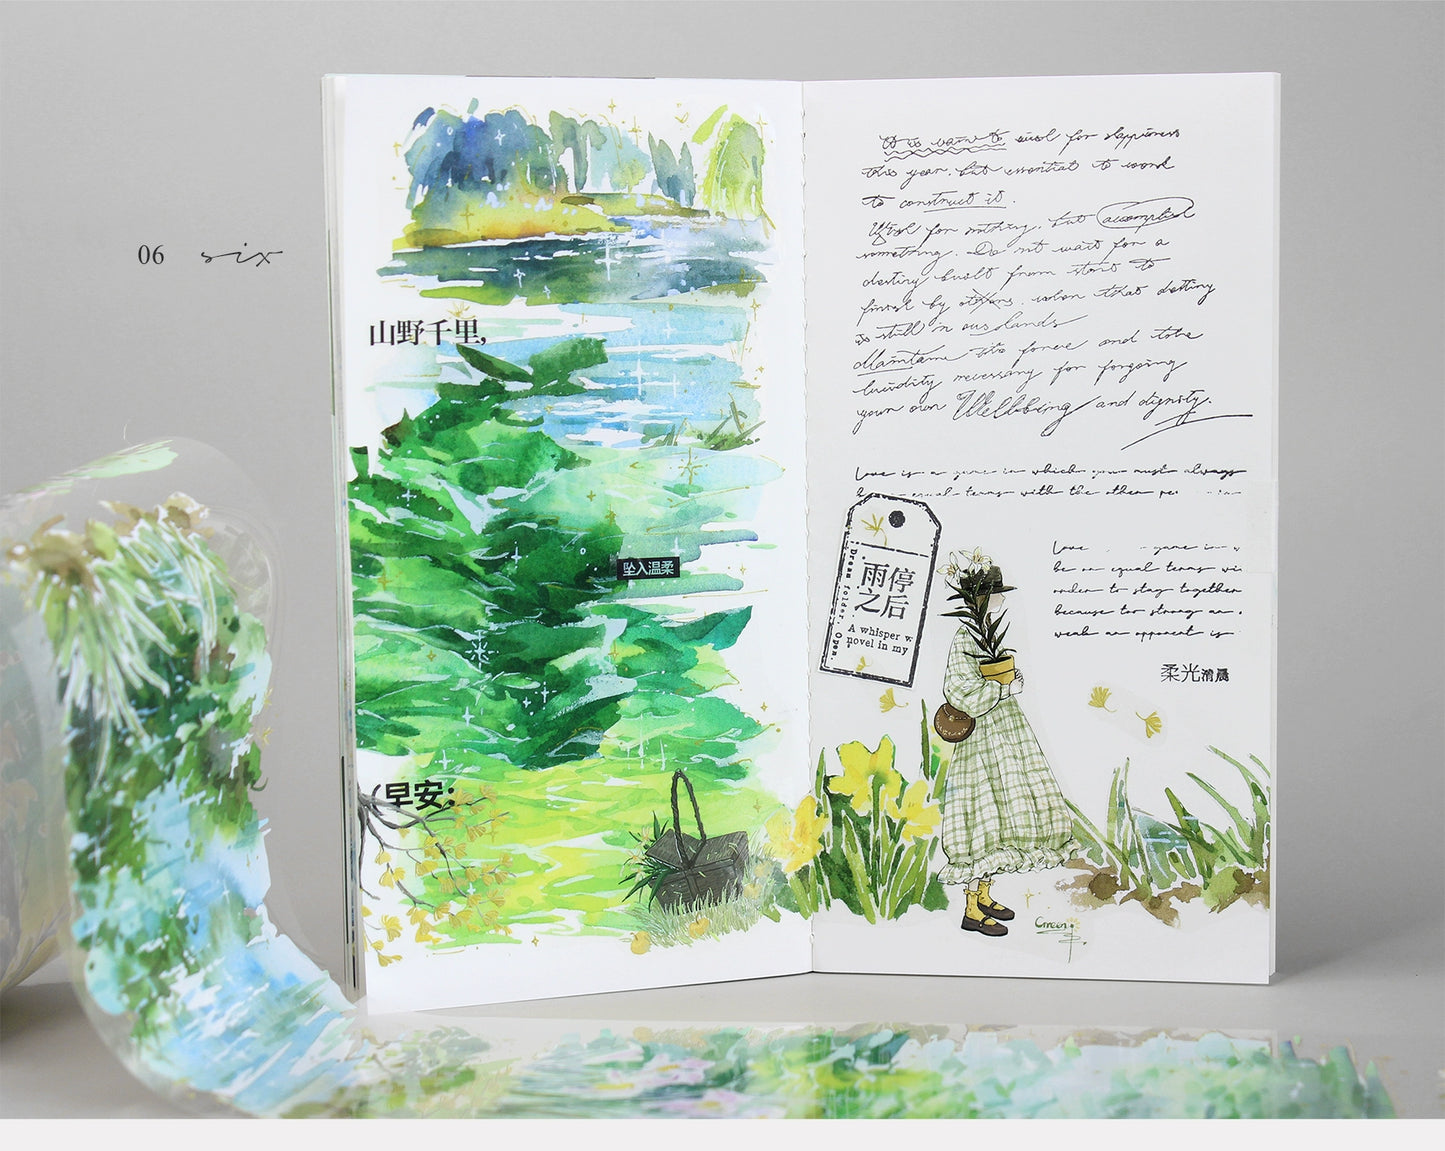 06 six
山野千里,
坠入温柔
(早安;
It is vain to wish for happiness
this year, but essential to work
to construct it.
Wish for nothing, but accomplish
something. Do not wait for a
destiny built from start to
finish by others, when that destiny
is still in our hands
Maintain the force and the
lucidity necessary for forgoing
your own Wellbeing and dignity.
Love is a game in which you must always
equal terms with the other
Dream folder. Open.
雨停
之后
A whisper w
novel in my
Love game in w
be on equal terms wi
order to stay together
because too strong an
weak an opponent is
柔光清晨
Green